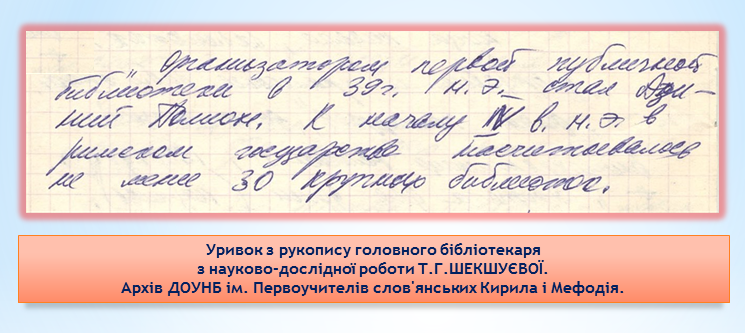 Организатором первой публичной
библиотеки в 39г. н.э. стал Ази-
ний Полион. К началу IV в. н.э. в
римском государстве насчитывалось
не менее 30 крупных библиотек.
Уривок з рукопису головного бібліотекаря
з науково-дослідної роботи Т.Г.ШЕКШУЄВОЇ.
Архів ДОУНБ ім. Первоучителів слов'янських Кирила і Мефодія.